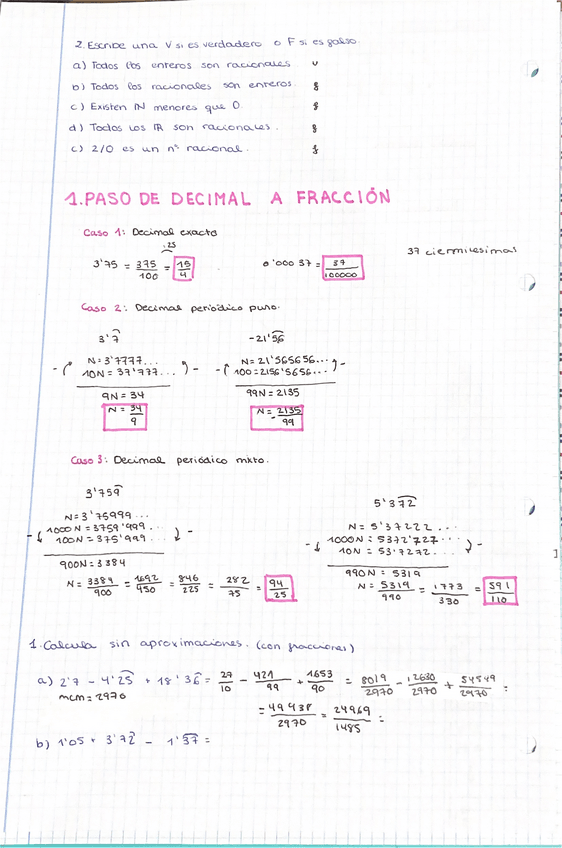 2. Escribe una V si es verdadero o F si es falso.
a) Todos los enteros son racionales v
b) Todos los racionales son enteros. f
c) Existen IN menores que 0. f
d) Todos los IR son racionales. f
c) 2/0 es un nº racional. f
1. PASO DE DECIMAL A FRACCIÓN
Caso 1: Decimal exacto
:25
3'75 = 375/100 = 15/4 0'000 37 = 37/100000 37 cienmilesimas
Caso 2: Decimal periódico puro.
3'7̑ -21'5̑6̑
N = 3'7777... N = 21'565656...
10N = 37'777... 100 = 2156'5656...
9N = 34 99N = 2135
N = 34/9 N = - 2135/99
Caso 3: Decimal periódico mixto.
3'759̑ 5'37̑2̑
N = 3'75999... N = 5'37222...
1000N = 3759'999... 1000N = 5372'727...
100N = 375'999... 10N = 53'7272...
900N = 3384 990N = 5319
N = 3384/900 = 1692/450 = 846/225 = 282/75 = 94/25 N = 5319/990 = 1773/330 = 591/110
1. Calcula sin aproximaciones. (con fracciones)
a) 2'7 - 4'2̑5̑ + 18'36̑ = 27/10 - 421/99 + 1653/90 = 8019/2970 - 12630/2970 + 54549/2970 =
mcm = 2970
= 49938/2970 = 24969/1485 =
b) 1'05 + 3'72̑ - 1'3̑7̑ =